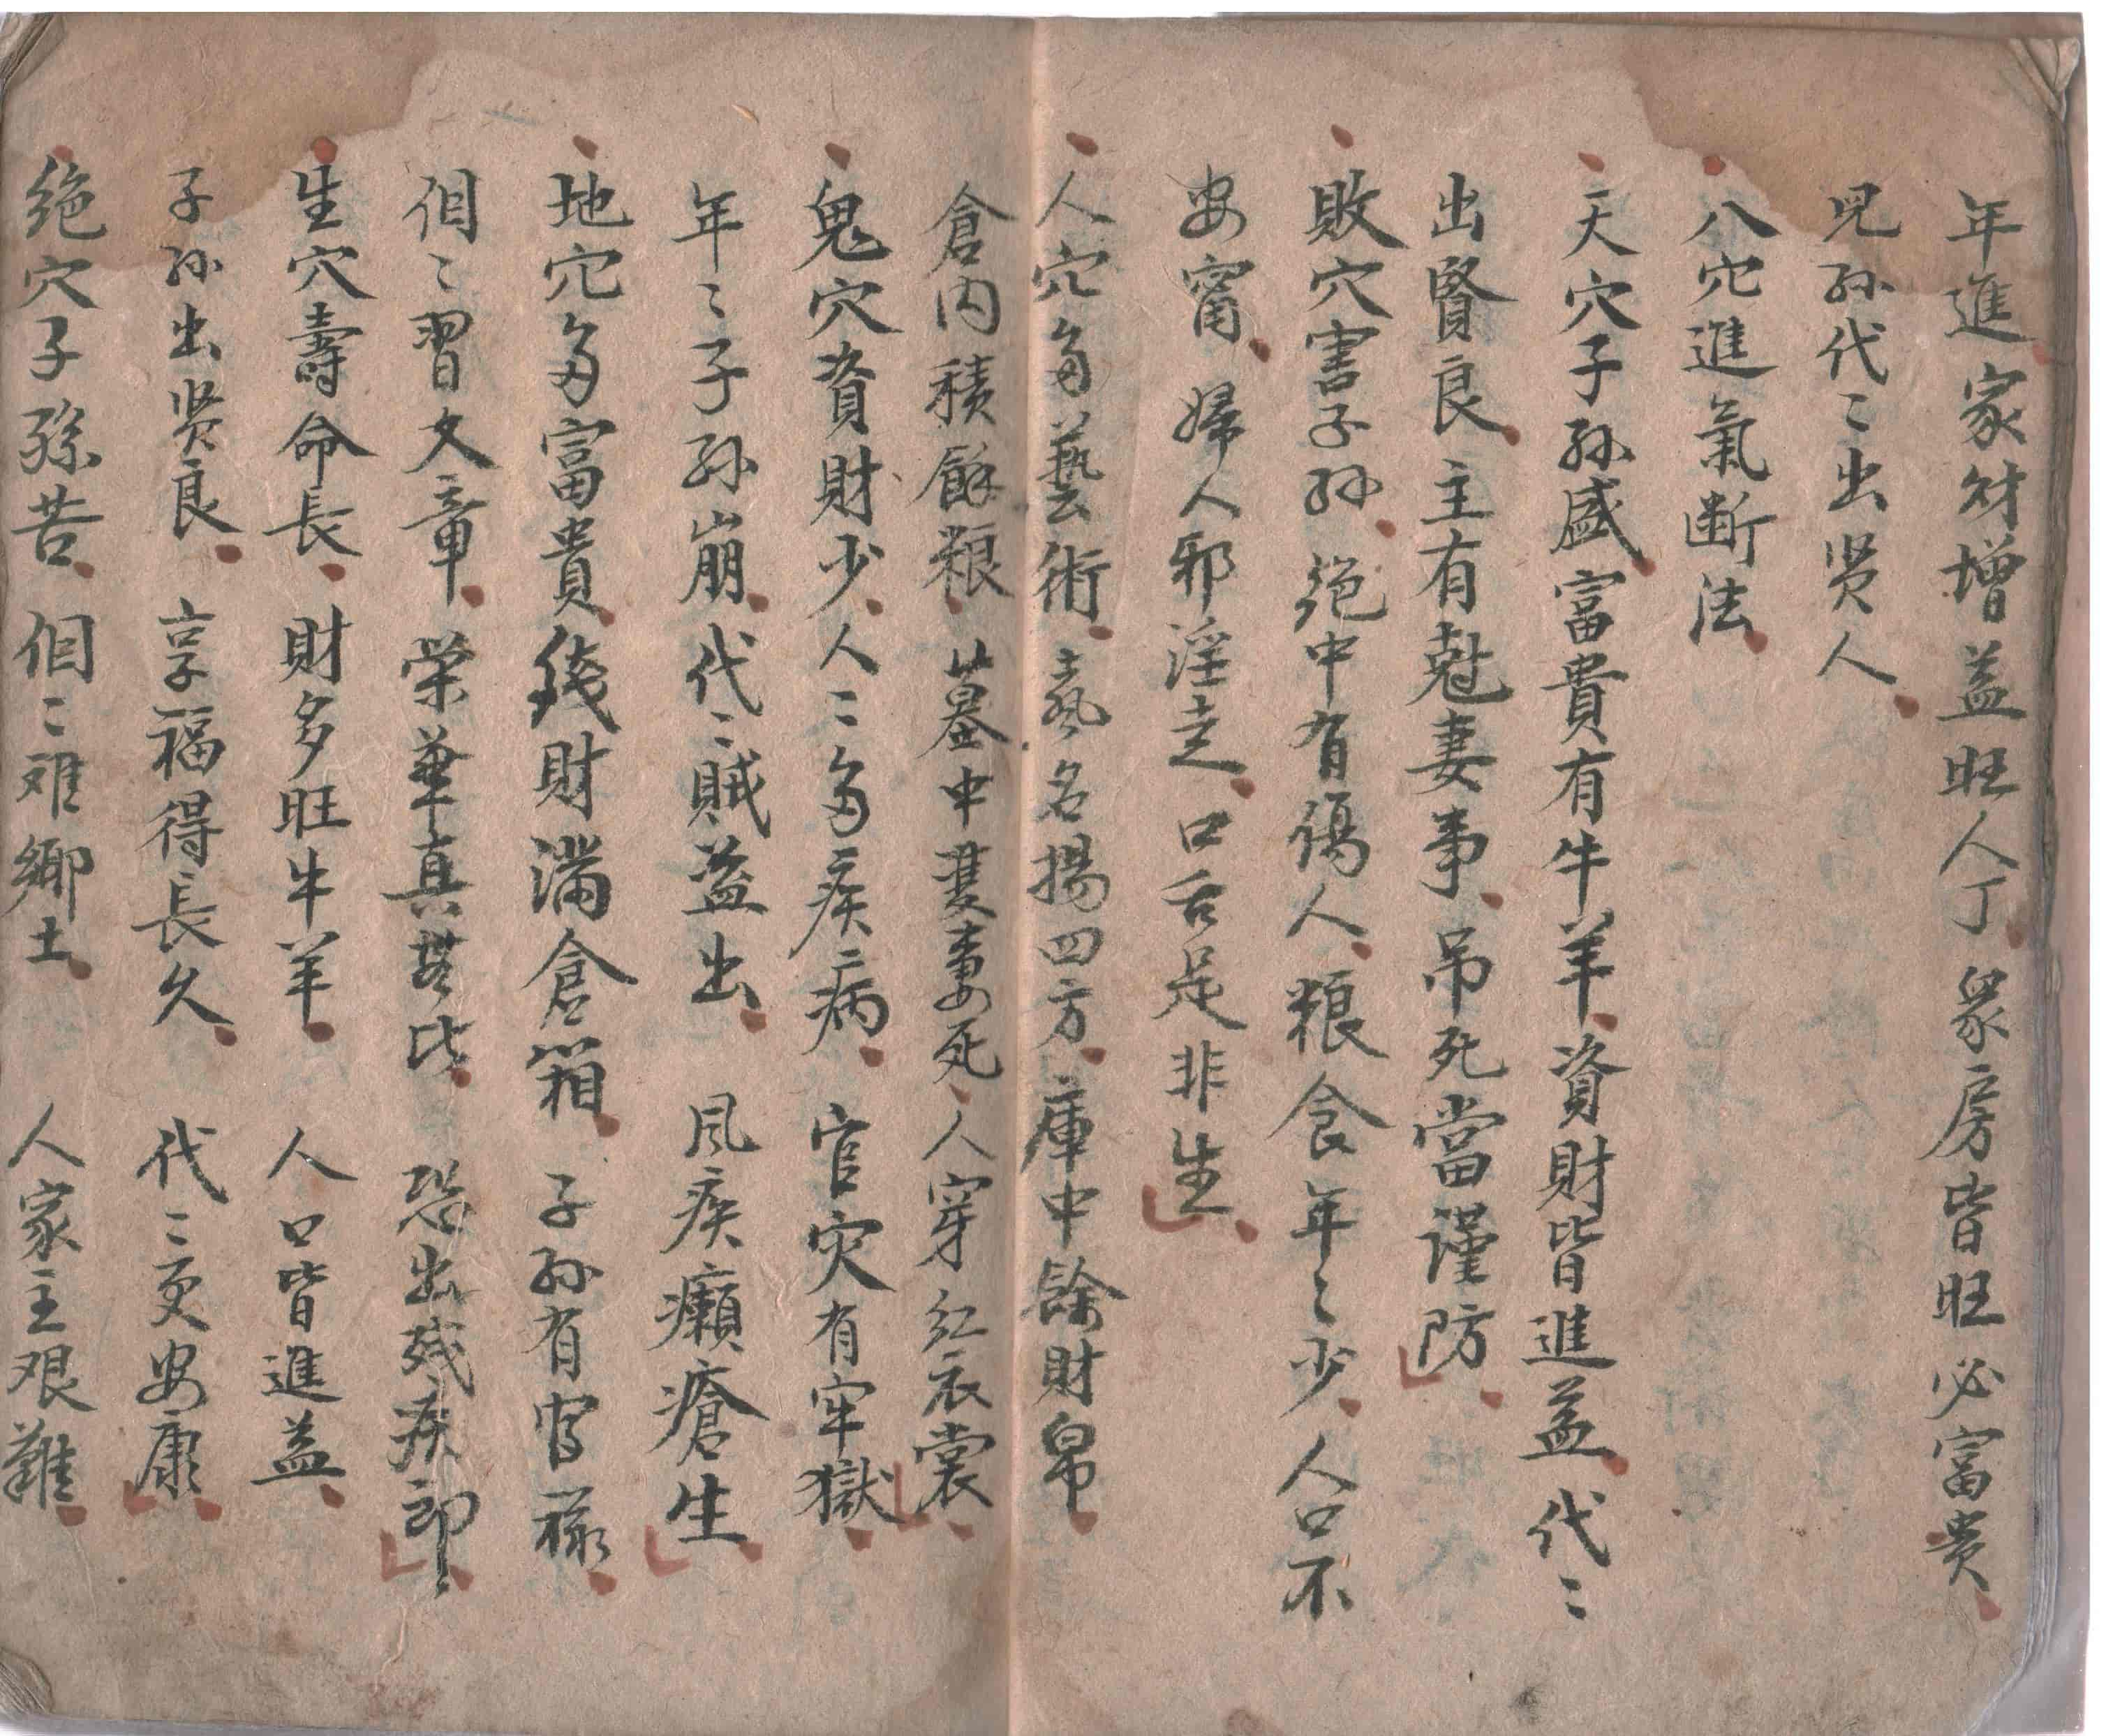 年進家財增益旺人丁眾房皆旺必富贵
兒孙代〻出贤人
八穴進氣断法
天穴子孙盛富貴有牛羊資財皆進益代〻
出賢良主有尅妻事吊死當謹防
敗穴害子孙絶中有傷人粮食年〻少人口不
安甯婦人邪淫走口舌是非生
人穴多藝術藝名揚四方庫中餘財帛
倉内積餘粮墓中雙妻死人穿紅衣裳
鬼穴資財少人〻多疾病官灾有牢獄
年〻子孙崩代〻賊益出风疾癩瘡生
地穴多富貴錢財滿倉箱子孙有官禄
個〻習文章荣華真甚比恐出残疾郎
生穴壽命長財多旺牛羊人口皆進益
子孙出贤良享福得長久代〻更安康
绝穴子孫苦個〻难鄉土人家主艰難